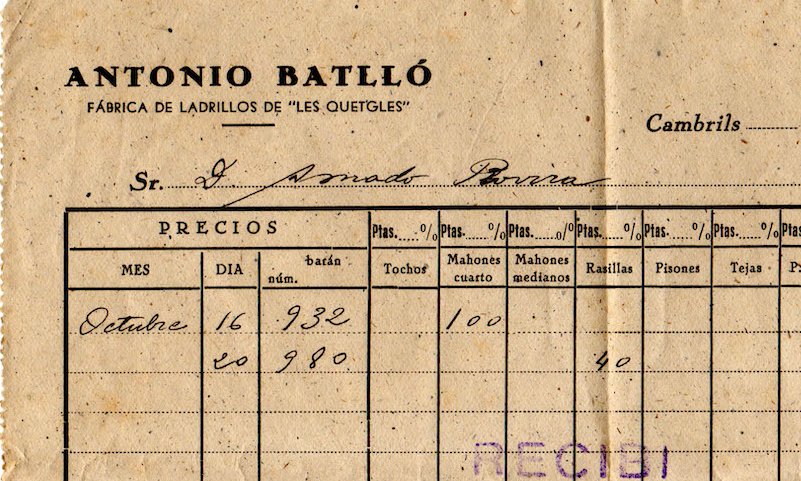 ANTONIO BATLLÓ
FÁBRICA DE LADRILLOS DE "LES QUETGLES"
Cambrils
Sr. D. Amado Rovira
PRECIOS Ptas. % Ptas. % Ptas. % Ptas. % Ptas. % Ptas. % Ptas
MES DIA barán núm. Tochos Mahones cuarto Mahones medianos Rasillas Pisones Tejas P
Octubre 16 932 100
20 980 40
RECIBI